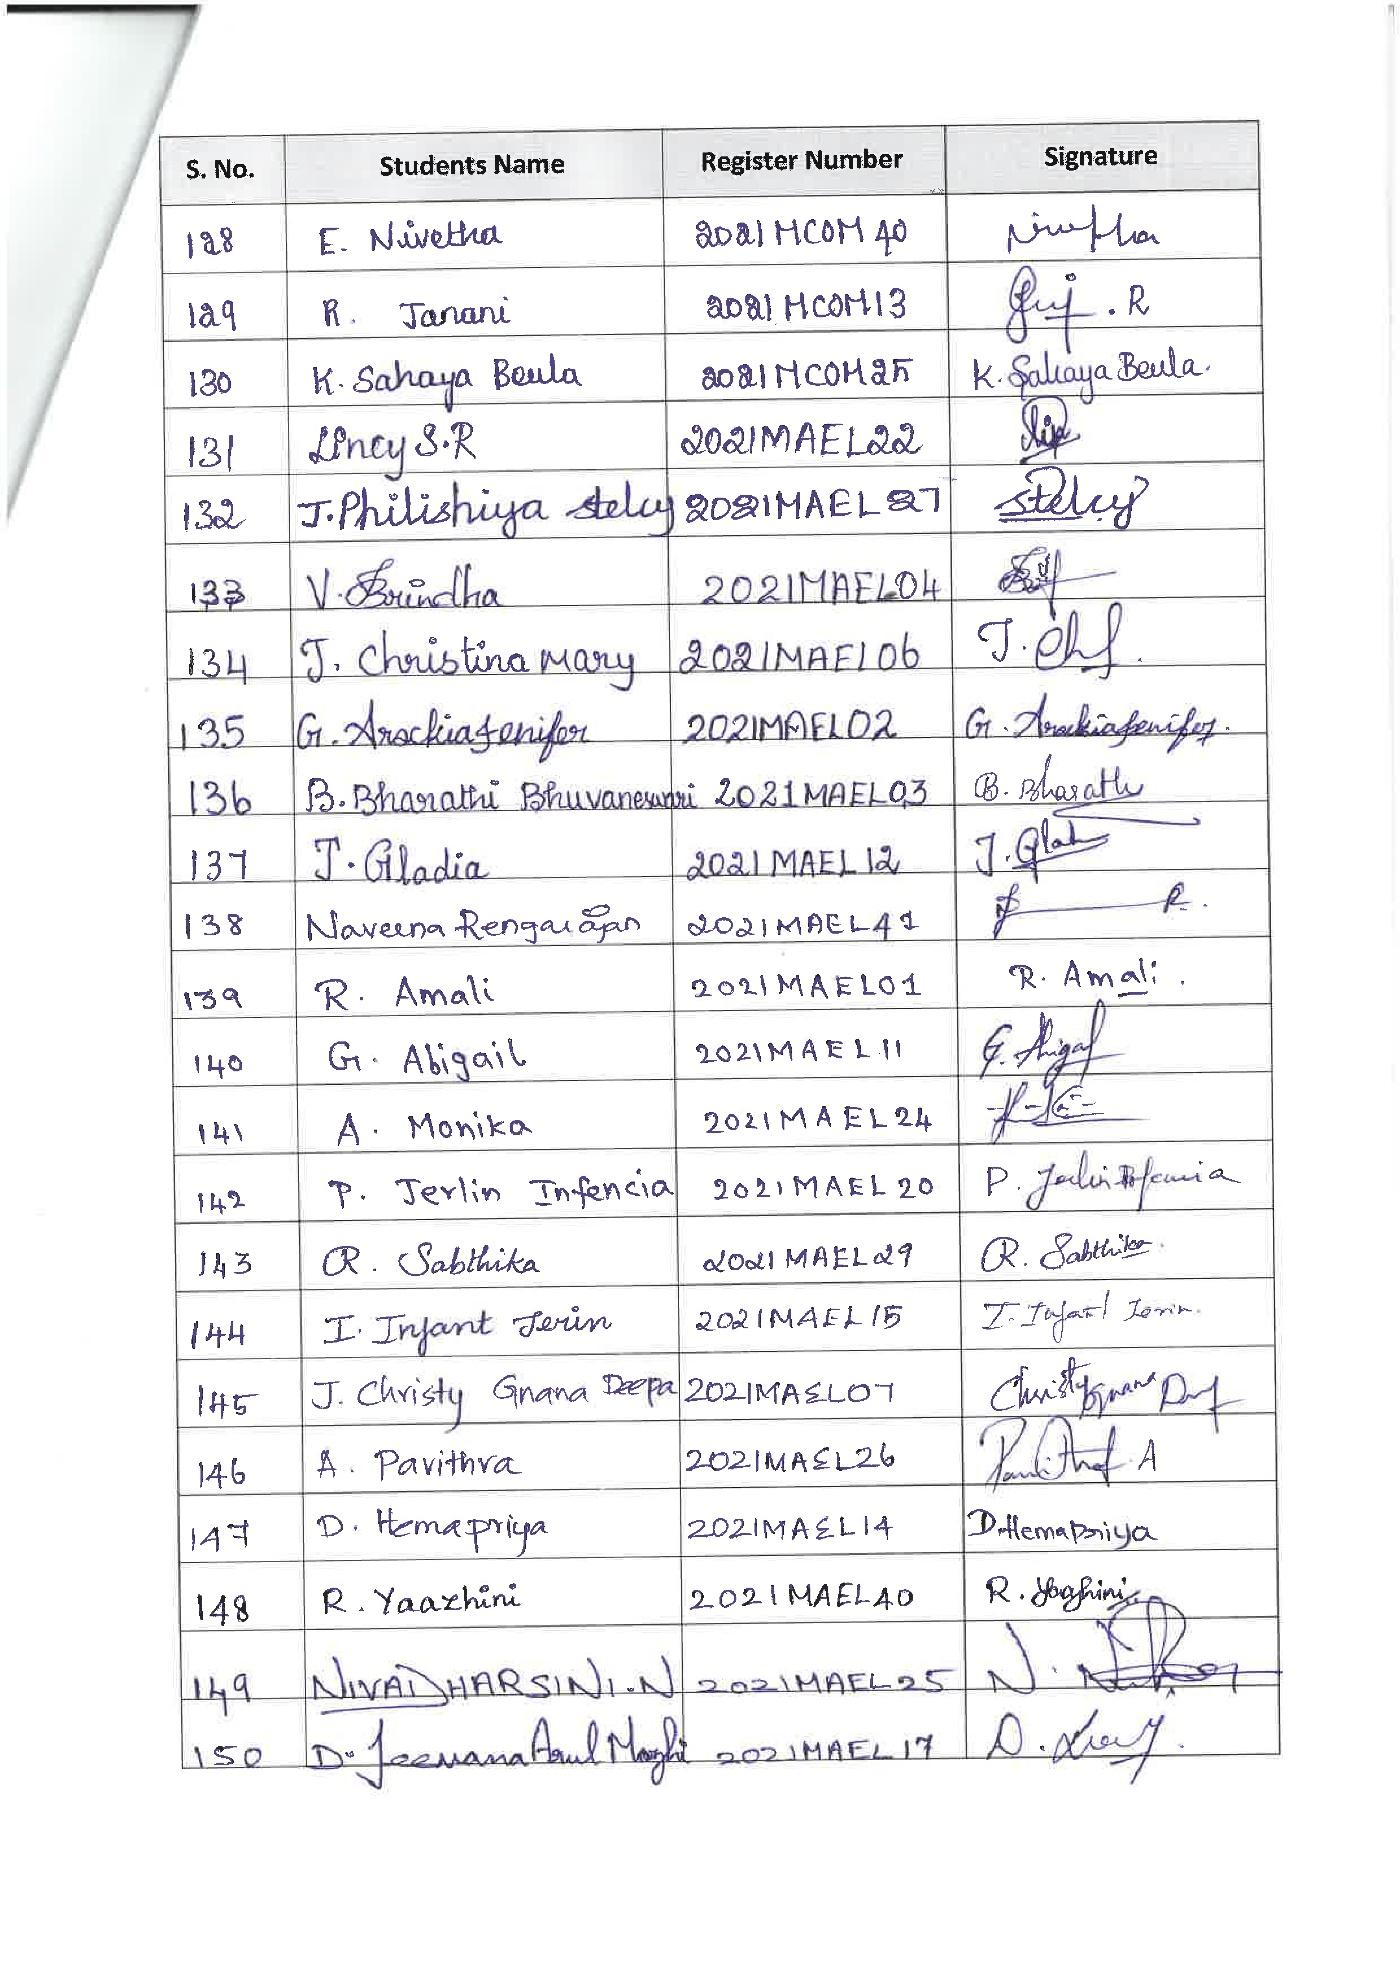 S. No. Students Name Register Number Signature
128 E. Nivetha 2021MCOM40 Nivetha
129 R. Janani 2021MCOM13 .R
130 K. Sahaya Beula 2021MCOM25 K. Sahaya Beula.
131 Lincy S.R 2021MAEL22
132 J. Philishiya stelcy 2021MAEL27 stelcy
133 V. Brindha 2021MAEL04
134 J. Christina mary 2021MAEL06 J.
135 G. Arockiajenifer 2021MAEL02 G. Arockiajenifer.
136 B. Bharathi Bhuvaneswari 2021MAEL03 B. Bharathi
137 J. Gladia 2021MAEL12 J. Glad
138 Naveena Rengarajan 2021MAEL41 R.
139 R. Amali 2021MAEL01 R. Amali.
140 G. Abigail 2021MAEL11 G. Abigail
141 A. Monika 2021MAEL24
142 P. Jerlin Infencia 2021MAEL20 P. Jerlin Infencia
143 R. Sabthika 2021MAEL29 R. Sabthika.
144 I. Infant Jerin 2021MAEL15 I. Infant Jerin.
145 J. Christy Gnana Deepa 2021MAEL07 Christy Gnana
146 A. Pavithra 2021MAEL26 A
147 D. Hemapriya 2021MAEL14 D. Hemapriya
148 R. Yaazhini 2021MAEL40 R. Yaazhini
149 NIVADHARSINI.N 2021MAEL25 N.
150 D. Jeevana Arul Mozhi 2021MAEL17 D.